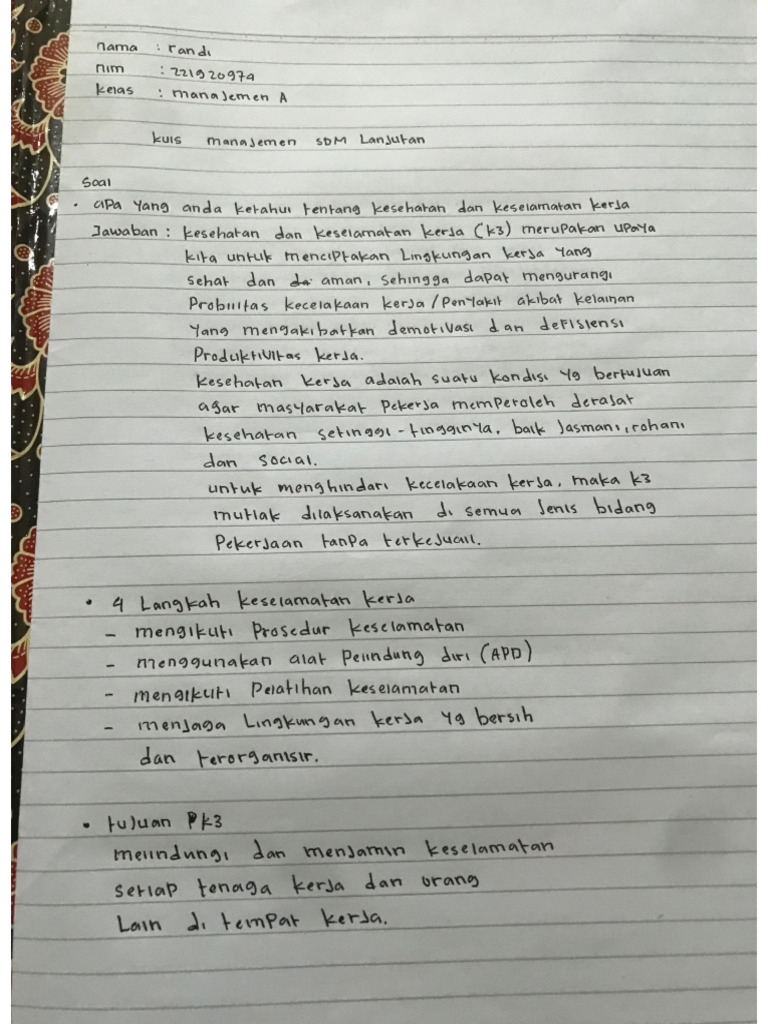 nama : randi
nim : 221920974
kelas : manajemen A
kuis manajemen SDM Lanjutan
Soal
• apa yang anda ketahui tentang kesehatan dan keselamatan kerja
Jawaban : kesehatan dan keselamatan kerja (k3) merupakan upaya
kita untuk menciptakan Lingkungan kerja yang
sehat dan da aman, sehingga dapat mengurangi
Probilitas kecelakaan kerja/Penyakit akibat kelainan
yang mengakibatkan demotivasi dan defisiensi
Produktivitas kerja.
kesehatan kerja adalah suatu kondisi yg bertujuan
agar masyarakat Pekerja memperoleh derajat
kesehatan setinggi-tingginya, baik Jasmani, rohani
dan social.
untuk menghindari kecelakaan kerja, maka k3
mutlak dilaksanakan di semua Jenis bidang
Pekerjaan tanpa terkejuali.
• 4 Langkah keselamatan kerja
- mengikuti Prosedur keselamatan
- menggunakan alat Pelindung diri (APD)
- mengikuti Pelatihan keselamatan
- menjaga Lingkungan kerja yg bersih
dan terorganisir.
• tujuan Pk3
melindungi dan menjamin keselamatan
setiap tenaga kerja dan orang
Lain di tempat kerja.